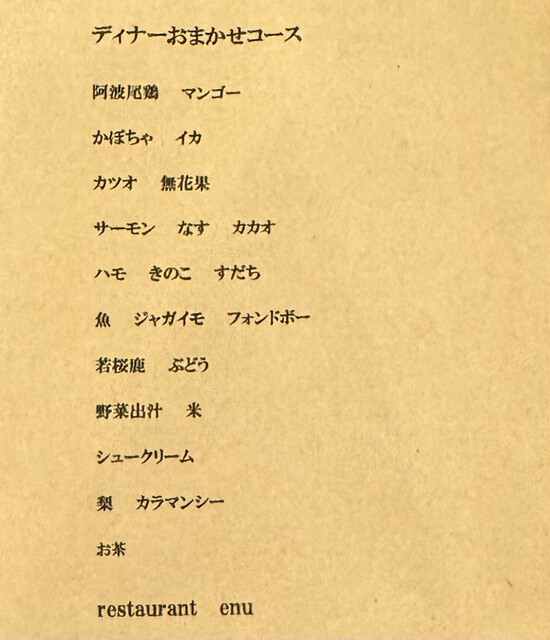 ディナーおまかせコース
阿波尾鶏　マンゴー
かぼちゃ　イカ
カツオ　無花果
サーモン　なす　カカオ
ハモ　きのこ　すだち
魚　ジャガイモ　フォンドボー
若桜鹿　ぶどう
野菜出汁　米
シュークリーム
梨　カラマンシー
お茶
restaurant enu